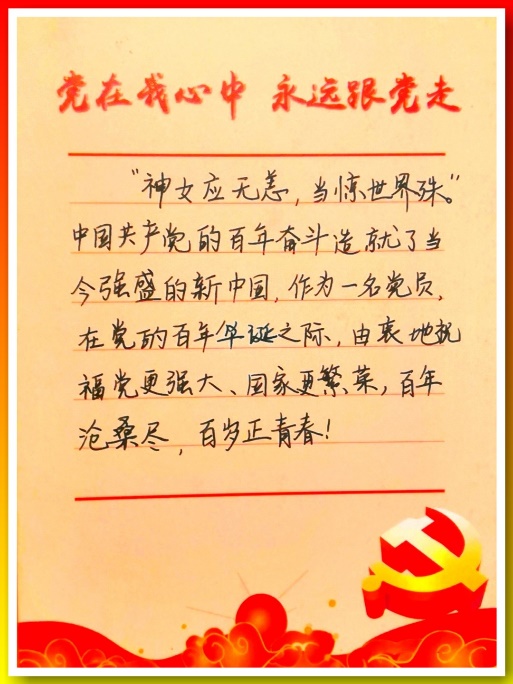 党在我心中 永远跟党走
"神女应无恙，当惊世界殊。"
中国共产党的百年奋斗造就了当
今强盛的新中国，作为一名党员，
在党的百年华诞之际，由衷地祝
福党更强大、国家更繁荣，百年
沧桑尽，百岁正青春！